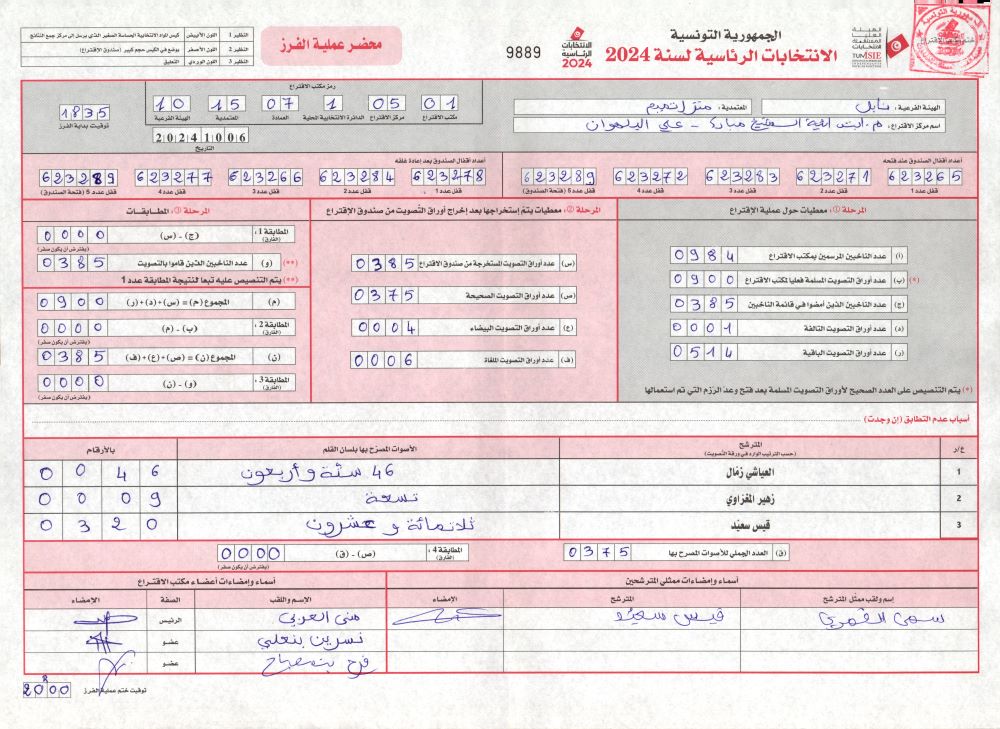 الجمهورية التونسية
الانتخابات الرئاسية لسنة 2024
الانتخابات الرئاسية 2024
9889
محضر عملية الفرز
النظير 1 | اللون الأبيض | كيس المواد الانتخابية الحساسة الصغير الذي يرسل إلى مركز جمع النتائج
النظير 2 | اللون الأصفر | يوضع في الكيس حجم كبير (صندوق الإقتراع)
النظير 3 | اللون الوردي | التعليق
الهيئة الفرعية: نابل
المعتمدية: منزل تميم
اسم مركز الاقتراع: علي البلهوان
رمز مكتب الاقتراع
01 05 1 07 15 10
مكتب الاقتراع مركز الاقتراع الدائرة الانتخابية المحلية العمادة المعتمدية الهيئة الفرعية
1835
توقيت بداية الفرز
20241006
التاريخ
أعداد أقفال الصندوق عند فتحه
623265 623271 623283 623272 623289
قفل عدد 1 قفل عدد 2 قفل عدد 3 قفل عدد 4 قفل عدد 5 (فتحة الصندوق)
أعداد أقفال الصندوق بعد إعادة غلقه
623278 623284 623266 623277 623289
قفل عدد 1 قفل عدد 2 قفل عدد 3 قفل عدد 4 قفل عدد 5 (فتحة الصندوق)
المرحلة ①: معطيات حول عملية الإقتراع
(ا) عدد الناخبين المرسمين بمكتب الاقتراع 0984
(*) (ب) عدد أوراق التصويت المسلمة فعليا لمكتب الاقتراع 0900
(ج) عدد الناخبين الذين أمضوا في قائمة الناخبين 0385
(د) عدد أوراق التصويت التالفة 0001
(ر) عدد أوراق التصويت الباقية 0514
(*) يتم التنصيص على العدد الصحيح لأوراق التصويت المسلمة بعد فتح وعد الرزم التي تم استعمالها
المرحلة ②: معطيات يتم إستخراجها بعد إخراج أوراق التصويت من صندوق الإقتراع
(س) عدد أوراق التصويت المستخرجة من صندوق الاقتراع 0385
(ص) عدد أوراق التصويت الصحيحة 0375
(ع) عدد أوراق التصويت البيضاء 0004
(ف) عدد أوراق التصويت الملغاة 0006
المرحلة ③: المطابقات
المطابقة 1: (الفارق) (ج) - (س) 0000
(يفترض أن يكون صفر)
(**) (و) عدد الناخبين الذين قاموا بالتصويت 0385
(**) يتم التنصيص عليه تبعا لنتيجة المطابقة عدد 1
(م) المجموع (م) = (س)+(د)+(ر) 0900
المطابقة 2: (الفارق) (ب) - (م) 0000
(يفترض أن يكون صفر)
(ن) المجموع (ن) = (ص)+(ع)+(ف) 0385
المطابقة 3: (الفارق) (و) - (ن) 0000
(يفترض أن يكون صفر)
أسباب عدم التطابق (إن وجدت)
ع/ر | المترشح (حسب الترتيب الوارد في ورقة التصويت) | الأصوات المصرح بها بلسان القلم | بالأرقام
1 | العياشي زمّال | 46 ستة وأربعون | 0046
2 | زهير المغزاوي | تسعة | 0009
3 | قيس سعيّد | ثلاثمائة وعشرون | 0320
(ق) العدد الجملي للأصوات المصرح بها 0375
المطابقة 4: (الفارق) (ص) - (ق) 0000
(يفترض أن يكون صفر)
أسماء وإمضاءات ممثلي المترشحين
إسم ولقب ممثل المترشح | المترشح | الامضاء
قيس سعيّد
أسماء وإمضاءات أعضاء مكتب الاقتراع
الإسم واللقب | الصفة | الإمضاء
منى العربي | الرئيس
نسرين بنعلي | عضو
فرح بنمصباح | عضو
توقيت ختم عملية الفرز 2000